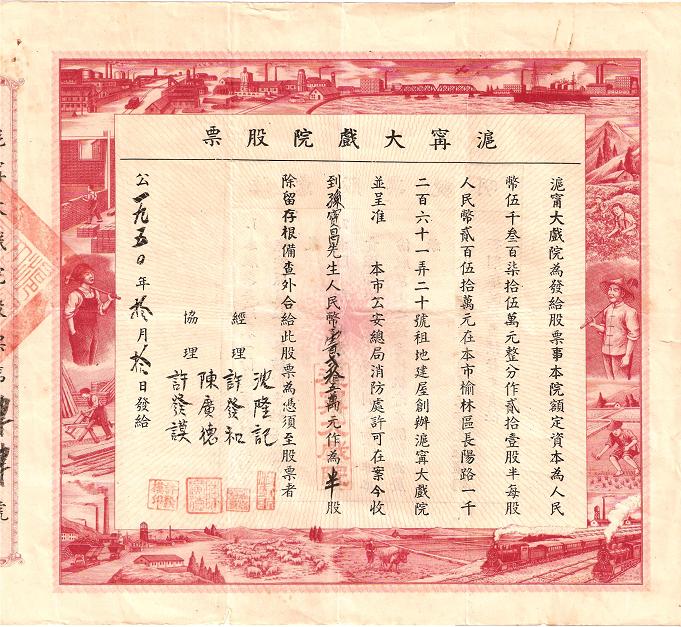 滬甯大戲院股票
滬甯大戲院為發給股票事本院額定資本為人民
幣伍千叁百柒拾伍萬元整分作貳拾壹股半每股
人民幣貳百伍拾萬元在本市榆林區長陽路一千
二百六十一弄二十號租地建屋創辦滬甯大戲院
並呈准 本市公安總局消防處許可在案今收
到孫寶昌先生人民幣壹百貳拾五萬元作為半股
除留存根備查外合給此股票為憑須至股票者
經理 沈隆記
許發和
協理 陳廣德
許發謨
公一九五〇年拾月拾日發給
滬甯大戲院股票第 號